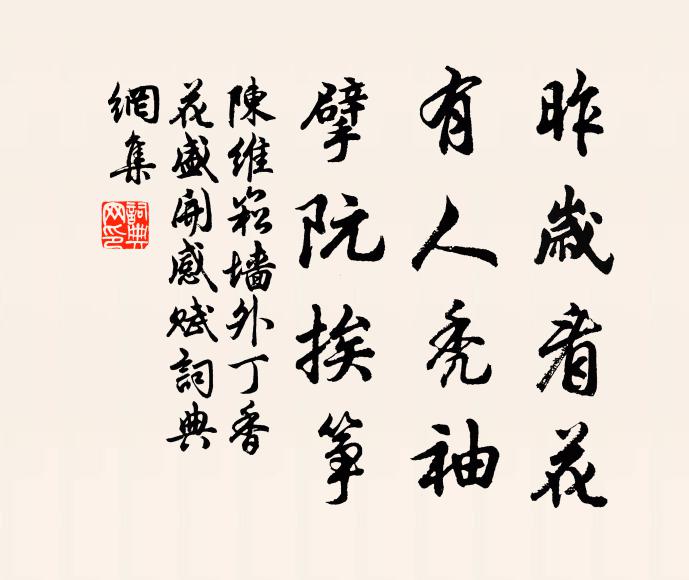 昨歲看花
有人禿袖
擘阮挨箏
陳維崧墻外丁香
花盛開感賦詞典
網集
詞典
网印